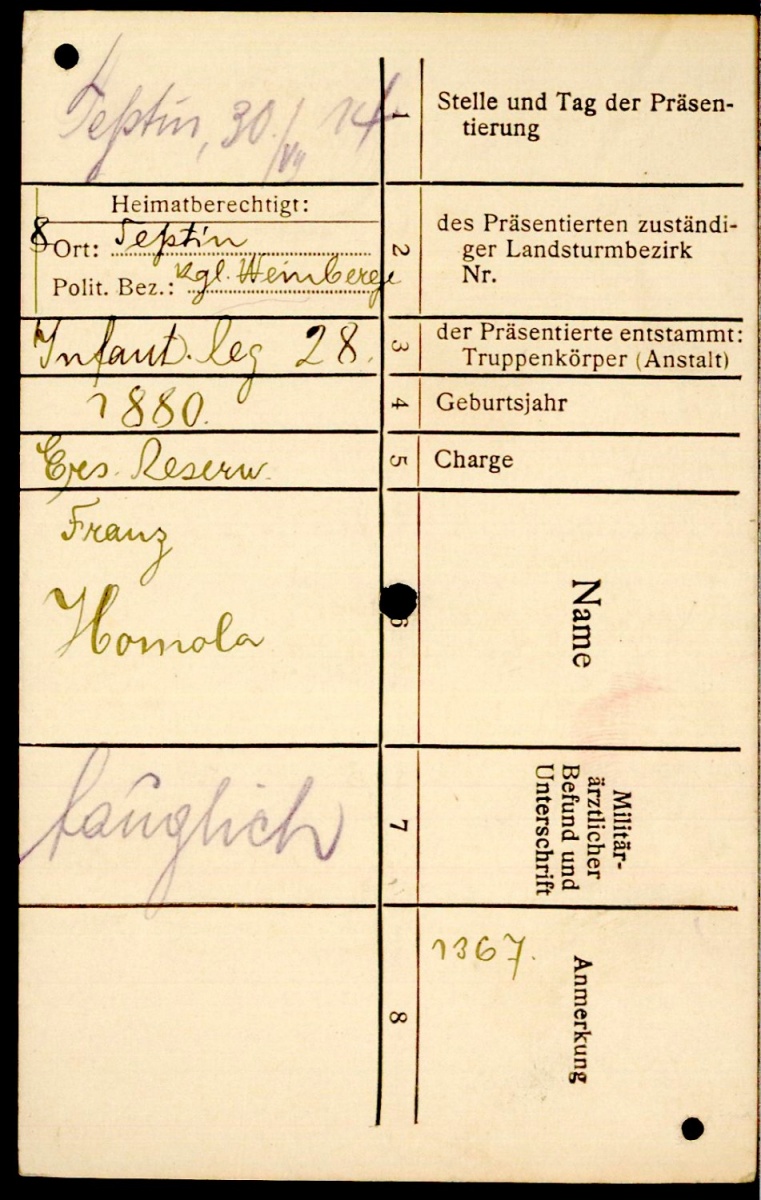 Teptin, 30./VII 14
1
Stelle und Tag der Präsen-
tierung
Heimatberechtigt:
8
Ort: Teptin
Polit. Bez.: Kgl. Weinberge
2
des Präsentierten zuständi-
ger Landsturmbezirk
Nr.
Infant. Reg 28.
3
der Präsentierte entstammt:
Truppenkörper (Anstalt)
1880.
4
Geburtsjahr
Ers. Reserv.
5
Charge
Franz
Homola
6
Name
tauglich
7
Militär-
ärztlicher
Befund und
Unterschrift
8
1367.
Anmerkung